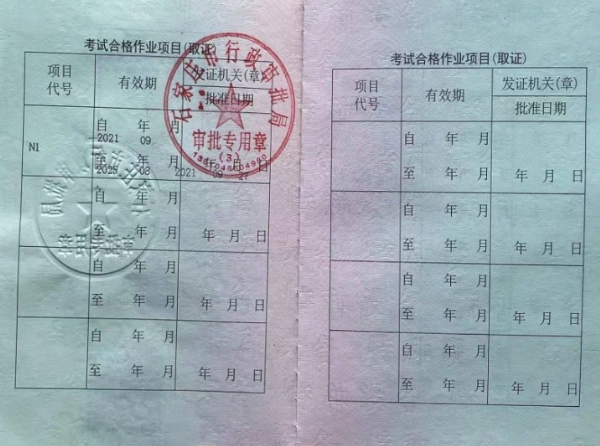 考试合格作业项目(取证)
项目代号
有效期
发证机关(章)
批准日期
石家庄市行政审批局
审批专用章
(3)
N1
自 2021 年 09 月
至 2025 年 08 月
2021 年 09 月 27 日
自 年 月
至 年 月
年 月 日
自 年 月
至 年 月
年 月 日
自 年 月
至 年 月
年 月 日
考试合格作业项目(取证)
项目代号
有效期
发证机关(章)
批准日期
自 年 月
至 年 月
年 月 日
自 年 月
至 年 月
年 月 日
自 年 月
至 年 月
年 月 日
自 年 月
至 年 月
年 月 日